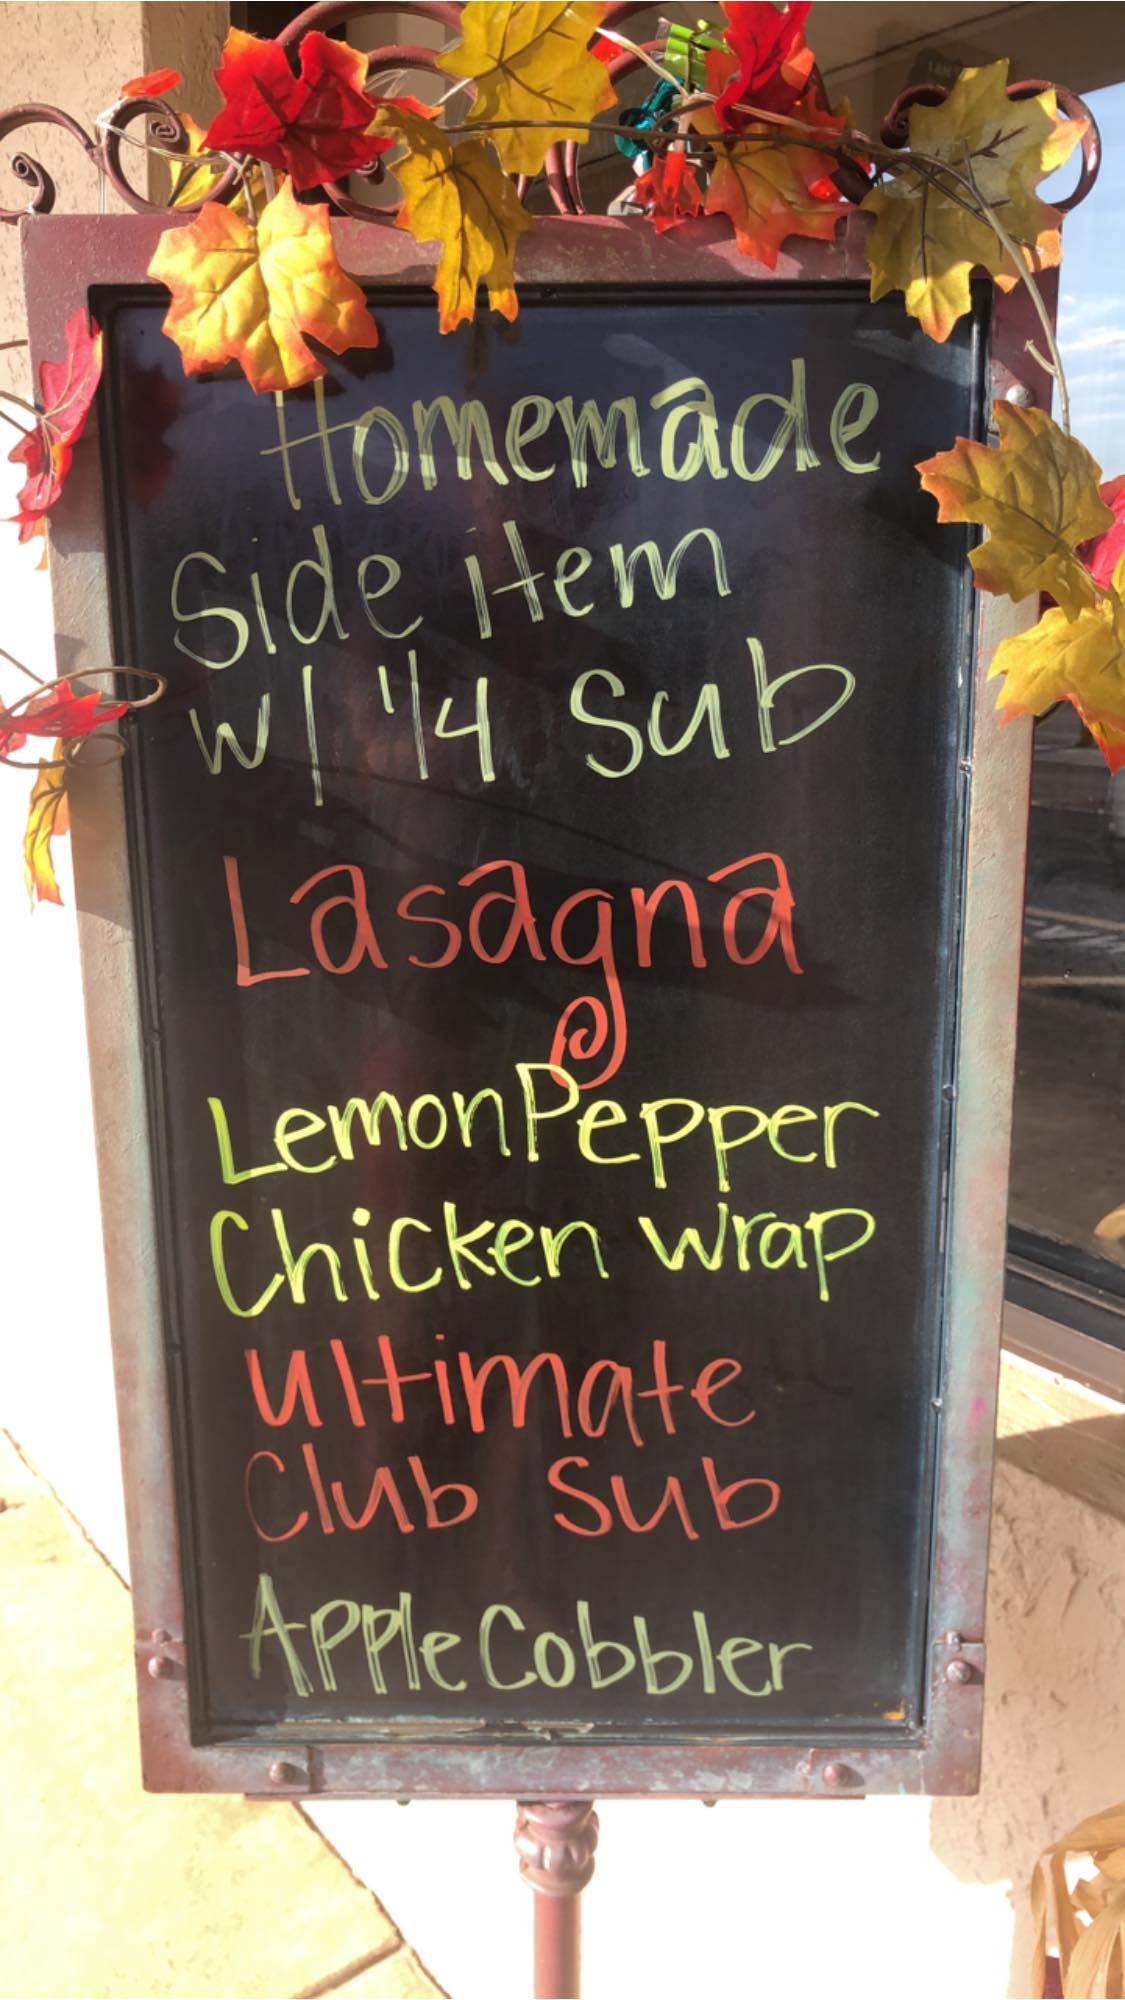 Homemade
Side item
w/ 1/4 Sub
Lasagna
Lemon Pepper
Chicken wrap
ultimate
Club Sub
Apple Cobbler